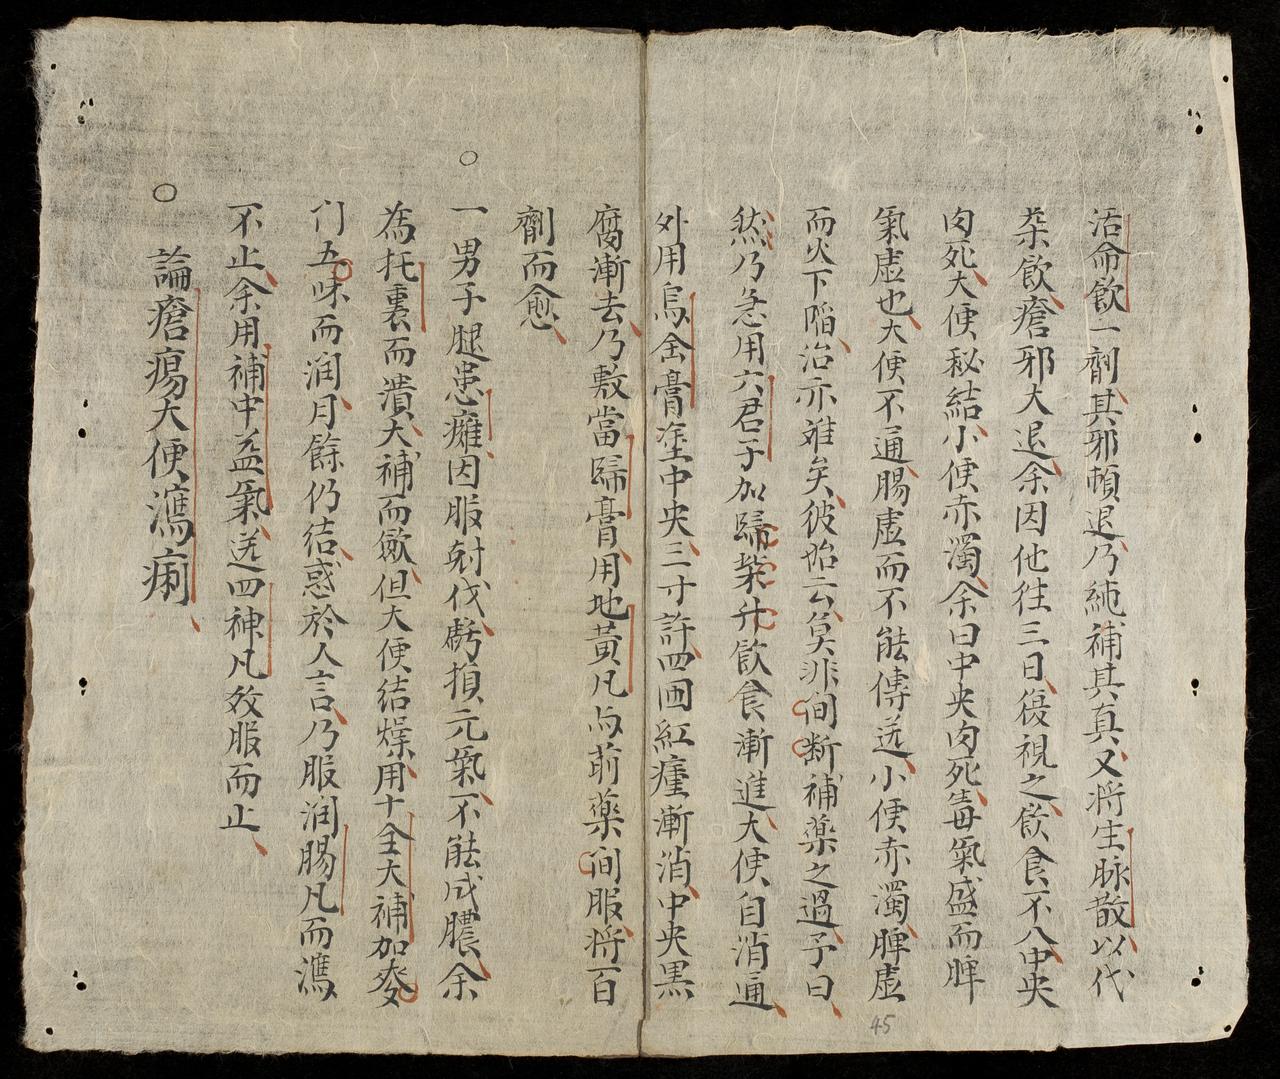 活命飲一劑其邪頓退乃純補其真又将生脉散以代
茶飲瘡邪大退余因他徃三日後視之飲食不入中央
肉死大便秘結小便赤濁余曰中央肉死毒氣盛而脾
氣虛也大便不通腸虛而不能傳送小便赤濁脾虛
而火下陷治亦难矣彼始云莫非间断補藥之過予曰
然乃急用六君子加歸柴升飲食漸進大便自消通
外用烏金膏塗中央三寸許四囬紅瘇漸消中央黒
腐漸去乃敷當歸膏用地黄凡与前藥间服将百
劑而愈
○
一男子腿患癰因服尅伐虧損元氣不能成膿余
為托裏而潰大補而斂但大便結燥用十全大補加麥
门五味而润月餘仍结惑於人言乃服润腸凡而瀉
不止余用補中益氣送四神凡效服而止
○
論瘡瘍大便瀉痢
45